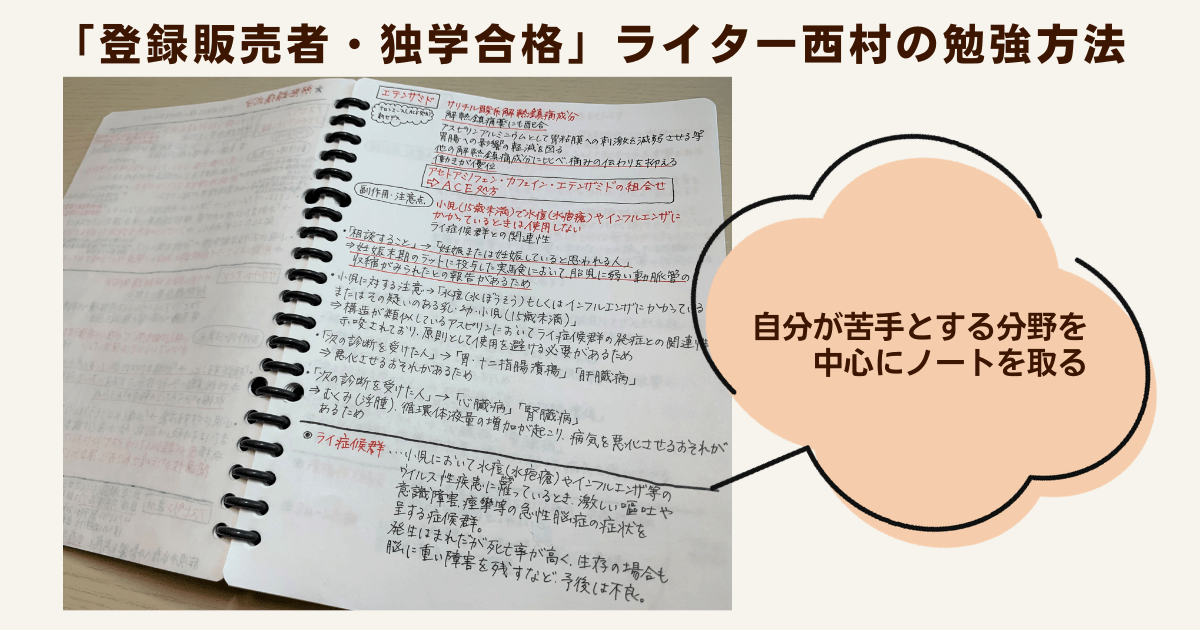 「登録販売者・独学合格」ライター西村の勉強方法
エテンザミド
サリチル酸系解熱鎮痛成分
解熱鎮痛薬にも配合
アスピリンアルミニウムとして胃粘膜への刺激を減弱させる等
胃腸への影響の軽減を図る
他の解熱鎮痛成分に比べ、痛みの伝わりを抑える
働きが優位
アセトアミノフェン・カフェイン・エテンザミドの組合せ
⇨ ACE処方
副作用・注意点
小児(15歳未満)で水痘(水疱瘡)やインフルエンザに
かかっているときは使用しない
ライ症候群との関連性
・「相談すること」→「妊娠または妊娠していると思われる人」
⇒妊娠末期のラットに投与した実験において、胎児に弱い動脈管の
収縮がみられたとの報告があるため
・小児に対する注意→「水痘(水ぼうそう)もしくはインフルエンザにかかっている
またはその疑いのある乳・幼・小児(15歳未満)」
⇒構造が類似しているアスピリンにおいてライ症候群の発症との関連性
示唆されており、原則として使用を避ける必要があるため
・「次の診断を受けた人」→「胃・十二指腸潰瘍」「肝臓病」
⇒悪化させるおそれがあるため
・「次の診断を受けた人」→「心臓病」「腎臓病」
⇒むくみ(浮腫)、循環体液量の増加が起こり、病気を悪化させるおそれが
あるため
◉ライ症候群…小児において水痘(水疱瘡)やインフルエンザ等の
ウイルス性疾患に罹っているとき、激しい嘔吐や
意識障害、痙攣等の急性脳症の症状を
呈する症候群。
発生はまれだが死亡率が高く、生存の場合も
脳に重い障害を残すなど、予後は不良。
自分が苦手とする分野を
中心にノートを取る